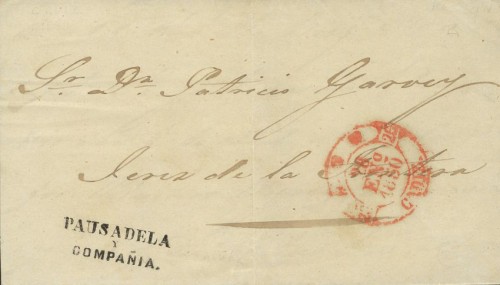 Sr. Dn. Patricio Garvey
Jerez de la Frontera
PAUSADELA
Y
COMPAÑIA.